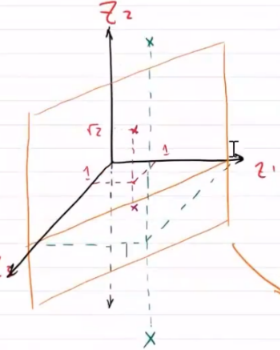 Z₂
x
√2
x
1
1
I
Z₁
x
x